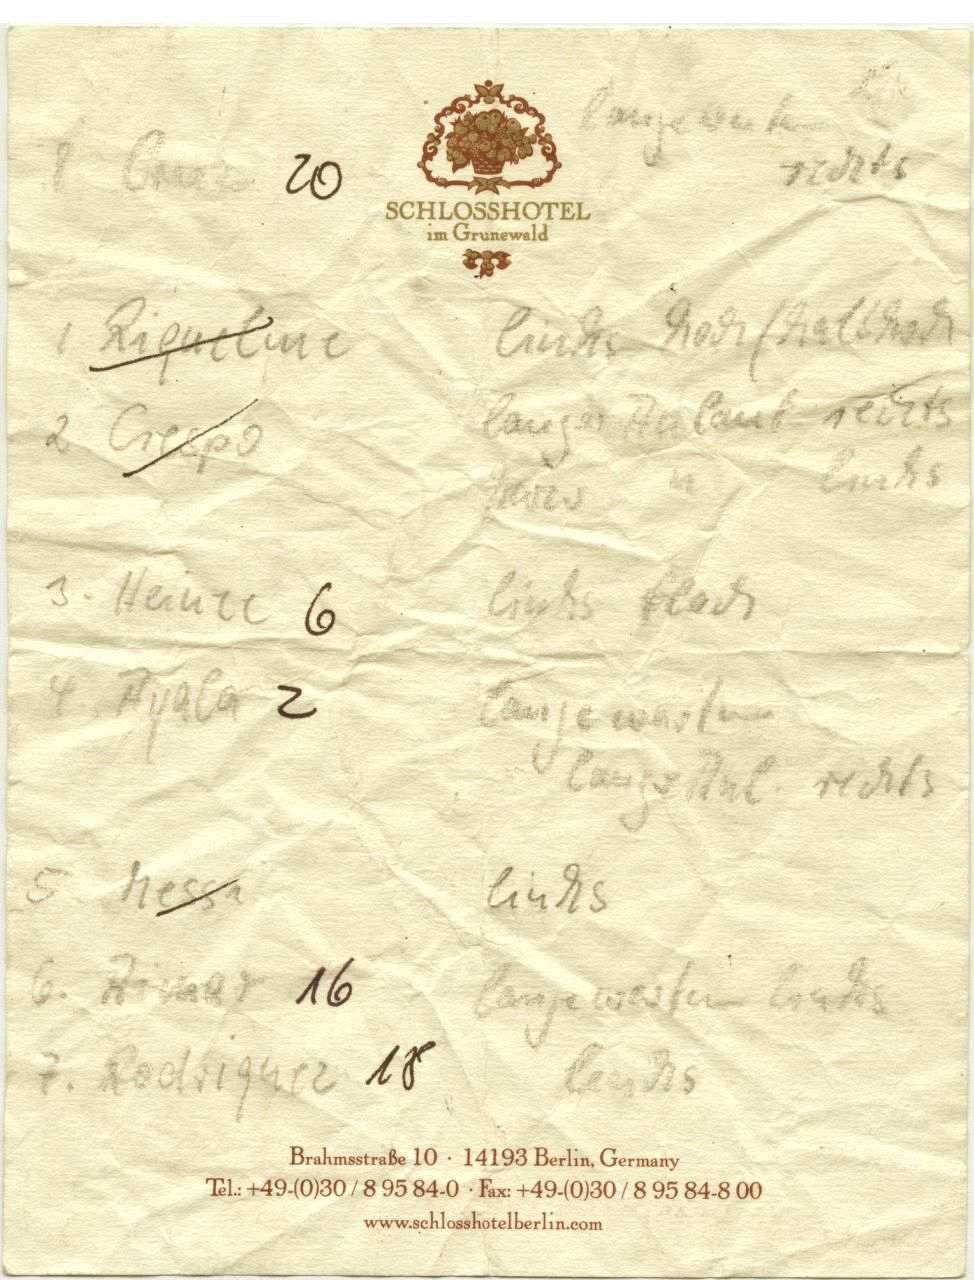 lange warten
8 Cruz 20 rechts
SCHLOSSHOTEL
im Grunewald
1 Riquelme links hoch/halbhoch
2 Crespo langer Anlauf rechts
kurz " links
3. Heinze 6 links flach
4. Ayala 2 lange warten
langer Anl. rechts
5. Messi links
6. Aimar 16 lange warten links
7. Rodriguez 18 links
Brahmsstraße 10 · 14193 Berlin, Germany
Tel.: +49-(0)30 / 8 95 84-0 · Fax: +49-(0)30 / 8 95 84-8 00
www.schlosshotelberlin.com